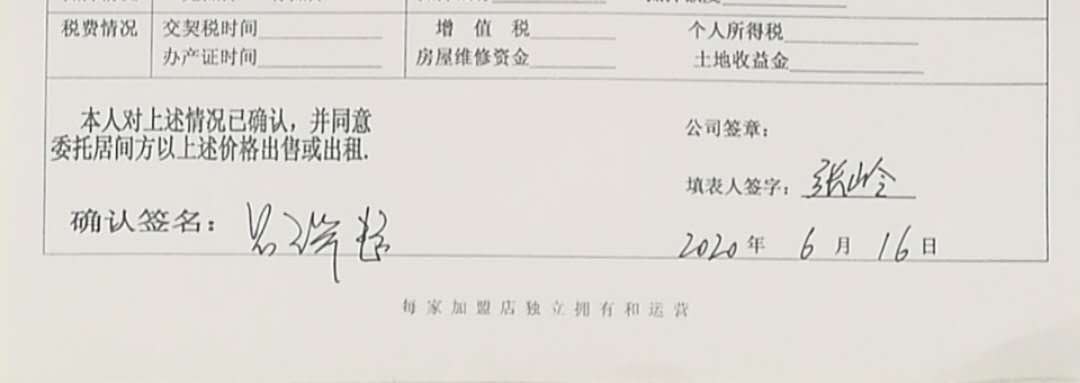 税费情况 交契税时间 增值税 个人所得税
办产证时间 房屋维修资金 土地收益金
本人对上述情况已确认，并同意
委托居间方以上述价格出售或出租.
公司签章：
填表人签字：张岭
确认签名：
2020年6月16日
每家加盟店独立拥有和运营